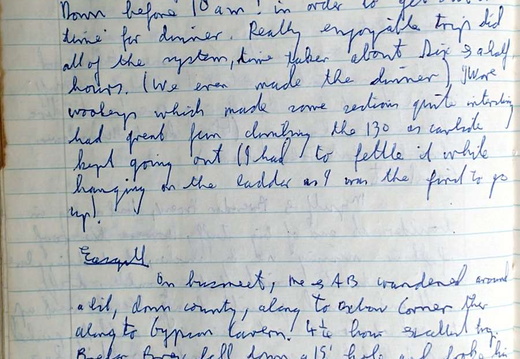 Down before 10 am! in order to get
time for dinner. Really enjoyable trip did
all of the system, time taken about six & a half
hours. (We even made the dinner) Wore
wooleys which made some sections quite interesting
had great fun climbing the 130 as carbide
kept going out (I had to fettle it while
hanging on the ladder as I was the first to go
up).
Easegill
On busmeet, me & AB wandered around
a bit, down county, along to Oxbow Corner then
along to Gypsum Cavern. 4½ hour excellent trip.
fell down a 15' hole and